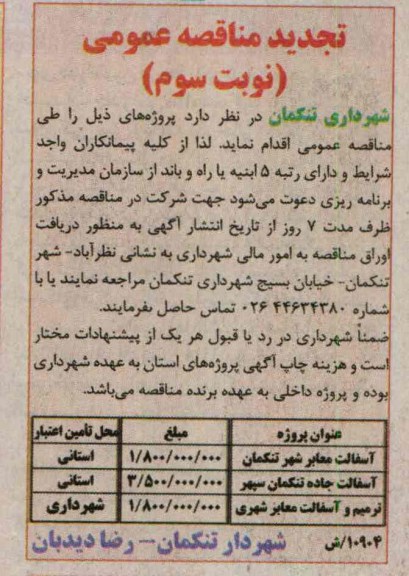 تجدید مناقصه عمومی
(نوبت سوم)
شهرداری تنکمان در نظر دارد پروژه‌های ذیل را طی
مناقصه عمومی اقدام نماید. لذا از کلیه پیمانکاران واجد
شرایط و دارای رتبه ۵ ابنیه یا راه و باند از سازمان مدیریت و
برنامه ریزی دعوت می‌شود جهت شرکت در مناقصه مذکور
ظرف مدت ۷ روز از تاریخ انتشار آگهی به منظور دریافت
اوراق مناقصه به امور مالی شهرداری به نشانی نظرآباد- شهر
تنکمان- خیابان بسیج شهرداری تنکمان مراجعه نمایند یا با
شماره ۴۴۶۳۴۳۸۰ ۰۲۶ تماس حاصل بفرمایند.
ضمناً شهرداری در رد یا قبول هر یک از پیشنهادات مختار
است و هزینه چاپ آگهی پروژه‌های استان به عهده شهرداری
بوده و پروژه داخلی به عهده برنده مناقصه می‌باشد.
عنوان پروژه مبلغ محل تامین اعتبار
آسفالت معابر شهر تنکمان ۱/۸۰۰/۰۰۰/۰۰۰ استانی
آسفالت جاده تنکمان سپهر ۳/۵۰۰/۰۰۰/۰۰۰ استانی
ترمیم و آسفالت معابر شهری ۱/۸۰۰/۰۰۰/۰۰۰ شهرداری
۱۰۹۰۴/ش شهردار تنکمان– رضا دیدبان